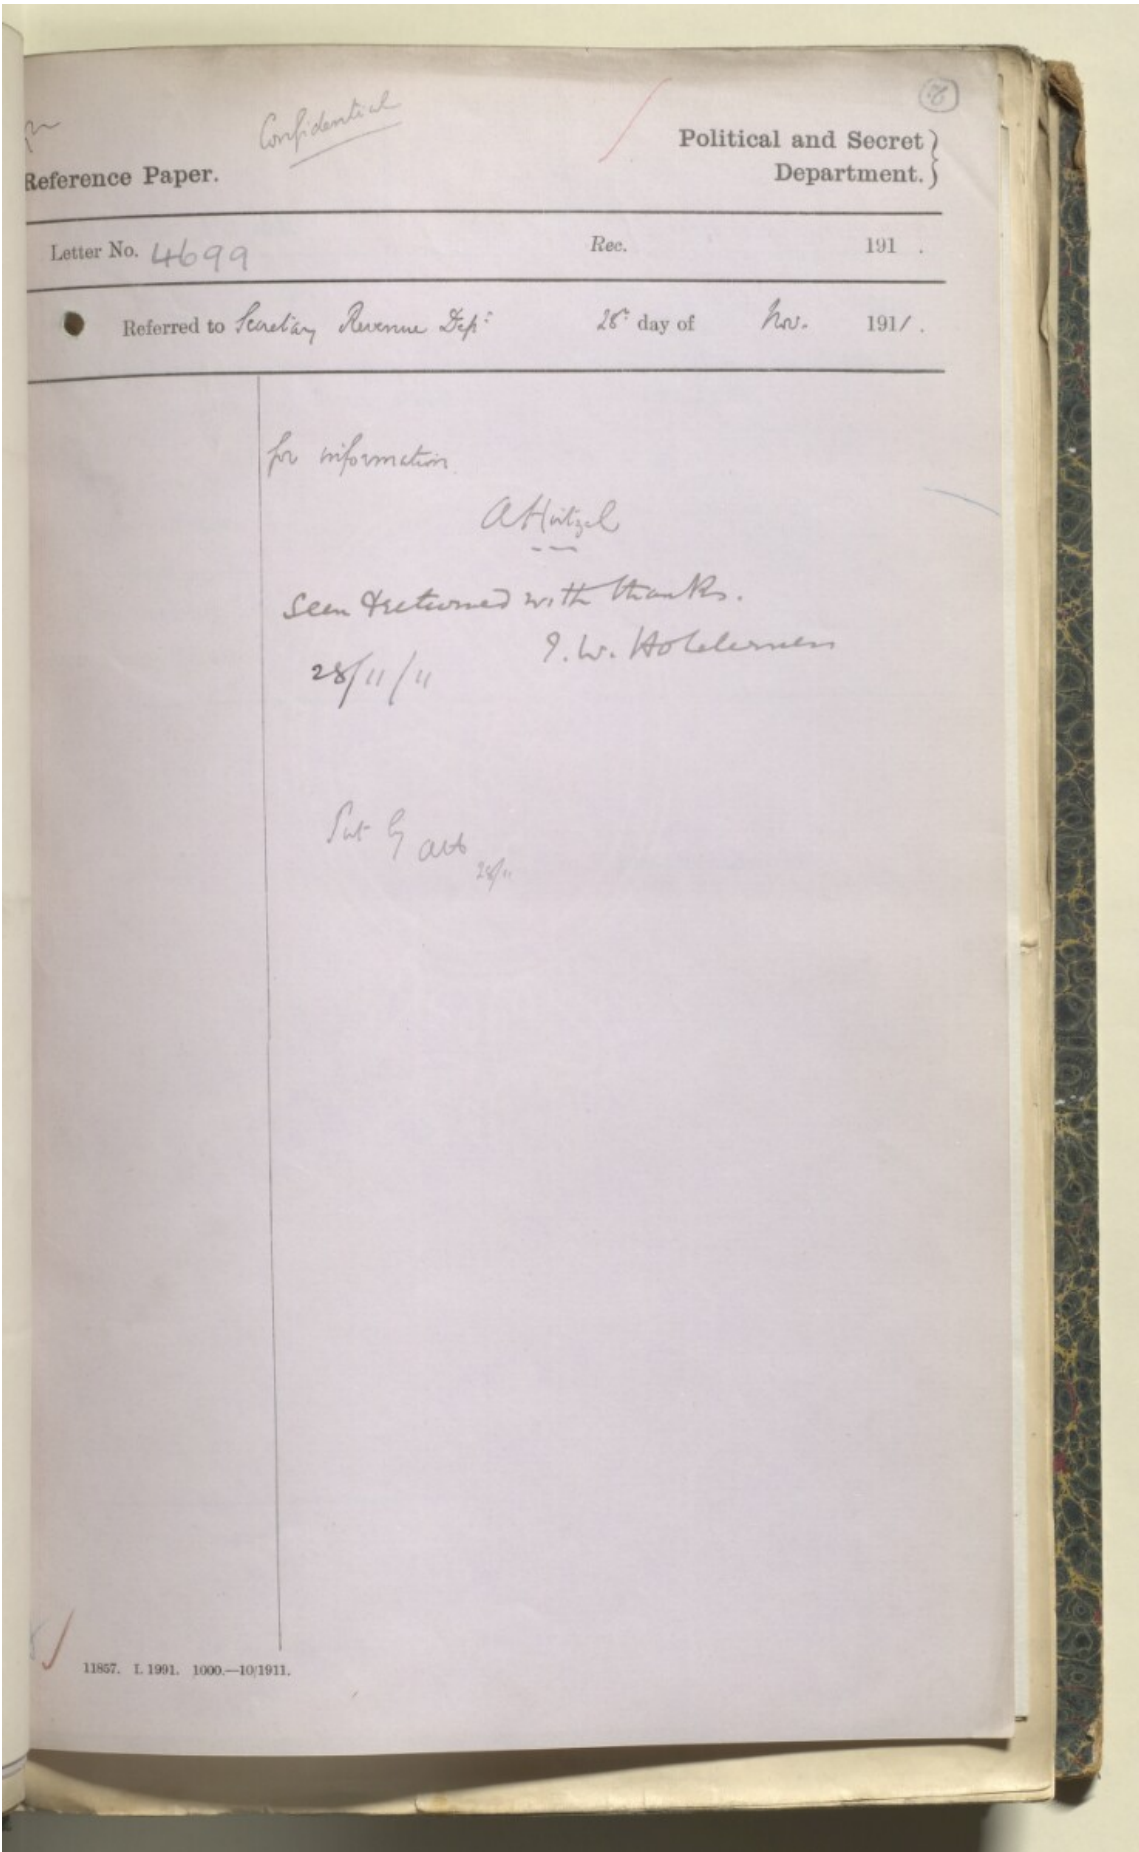 Confidential
Political and Secret
Reference Paper.
Department.
Letter No. 4699 Rec. 191 .
Referred to Secretary Revenue Dept: 28th day of Nov. 1911.
for information
A Hirtzel
Seen & returned with thanks.
T. W. Holderness
28/11/11
Put by
28/11
11857. I. 1991. 1000.—10/1911.